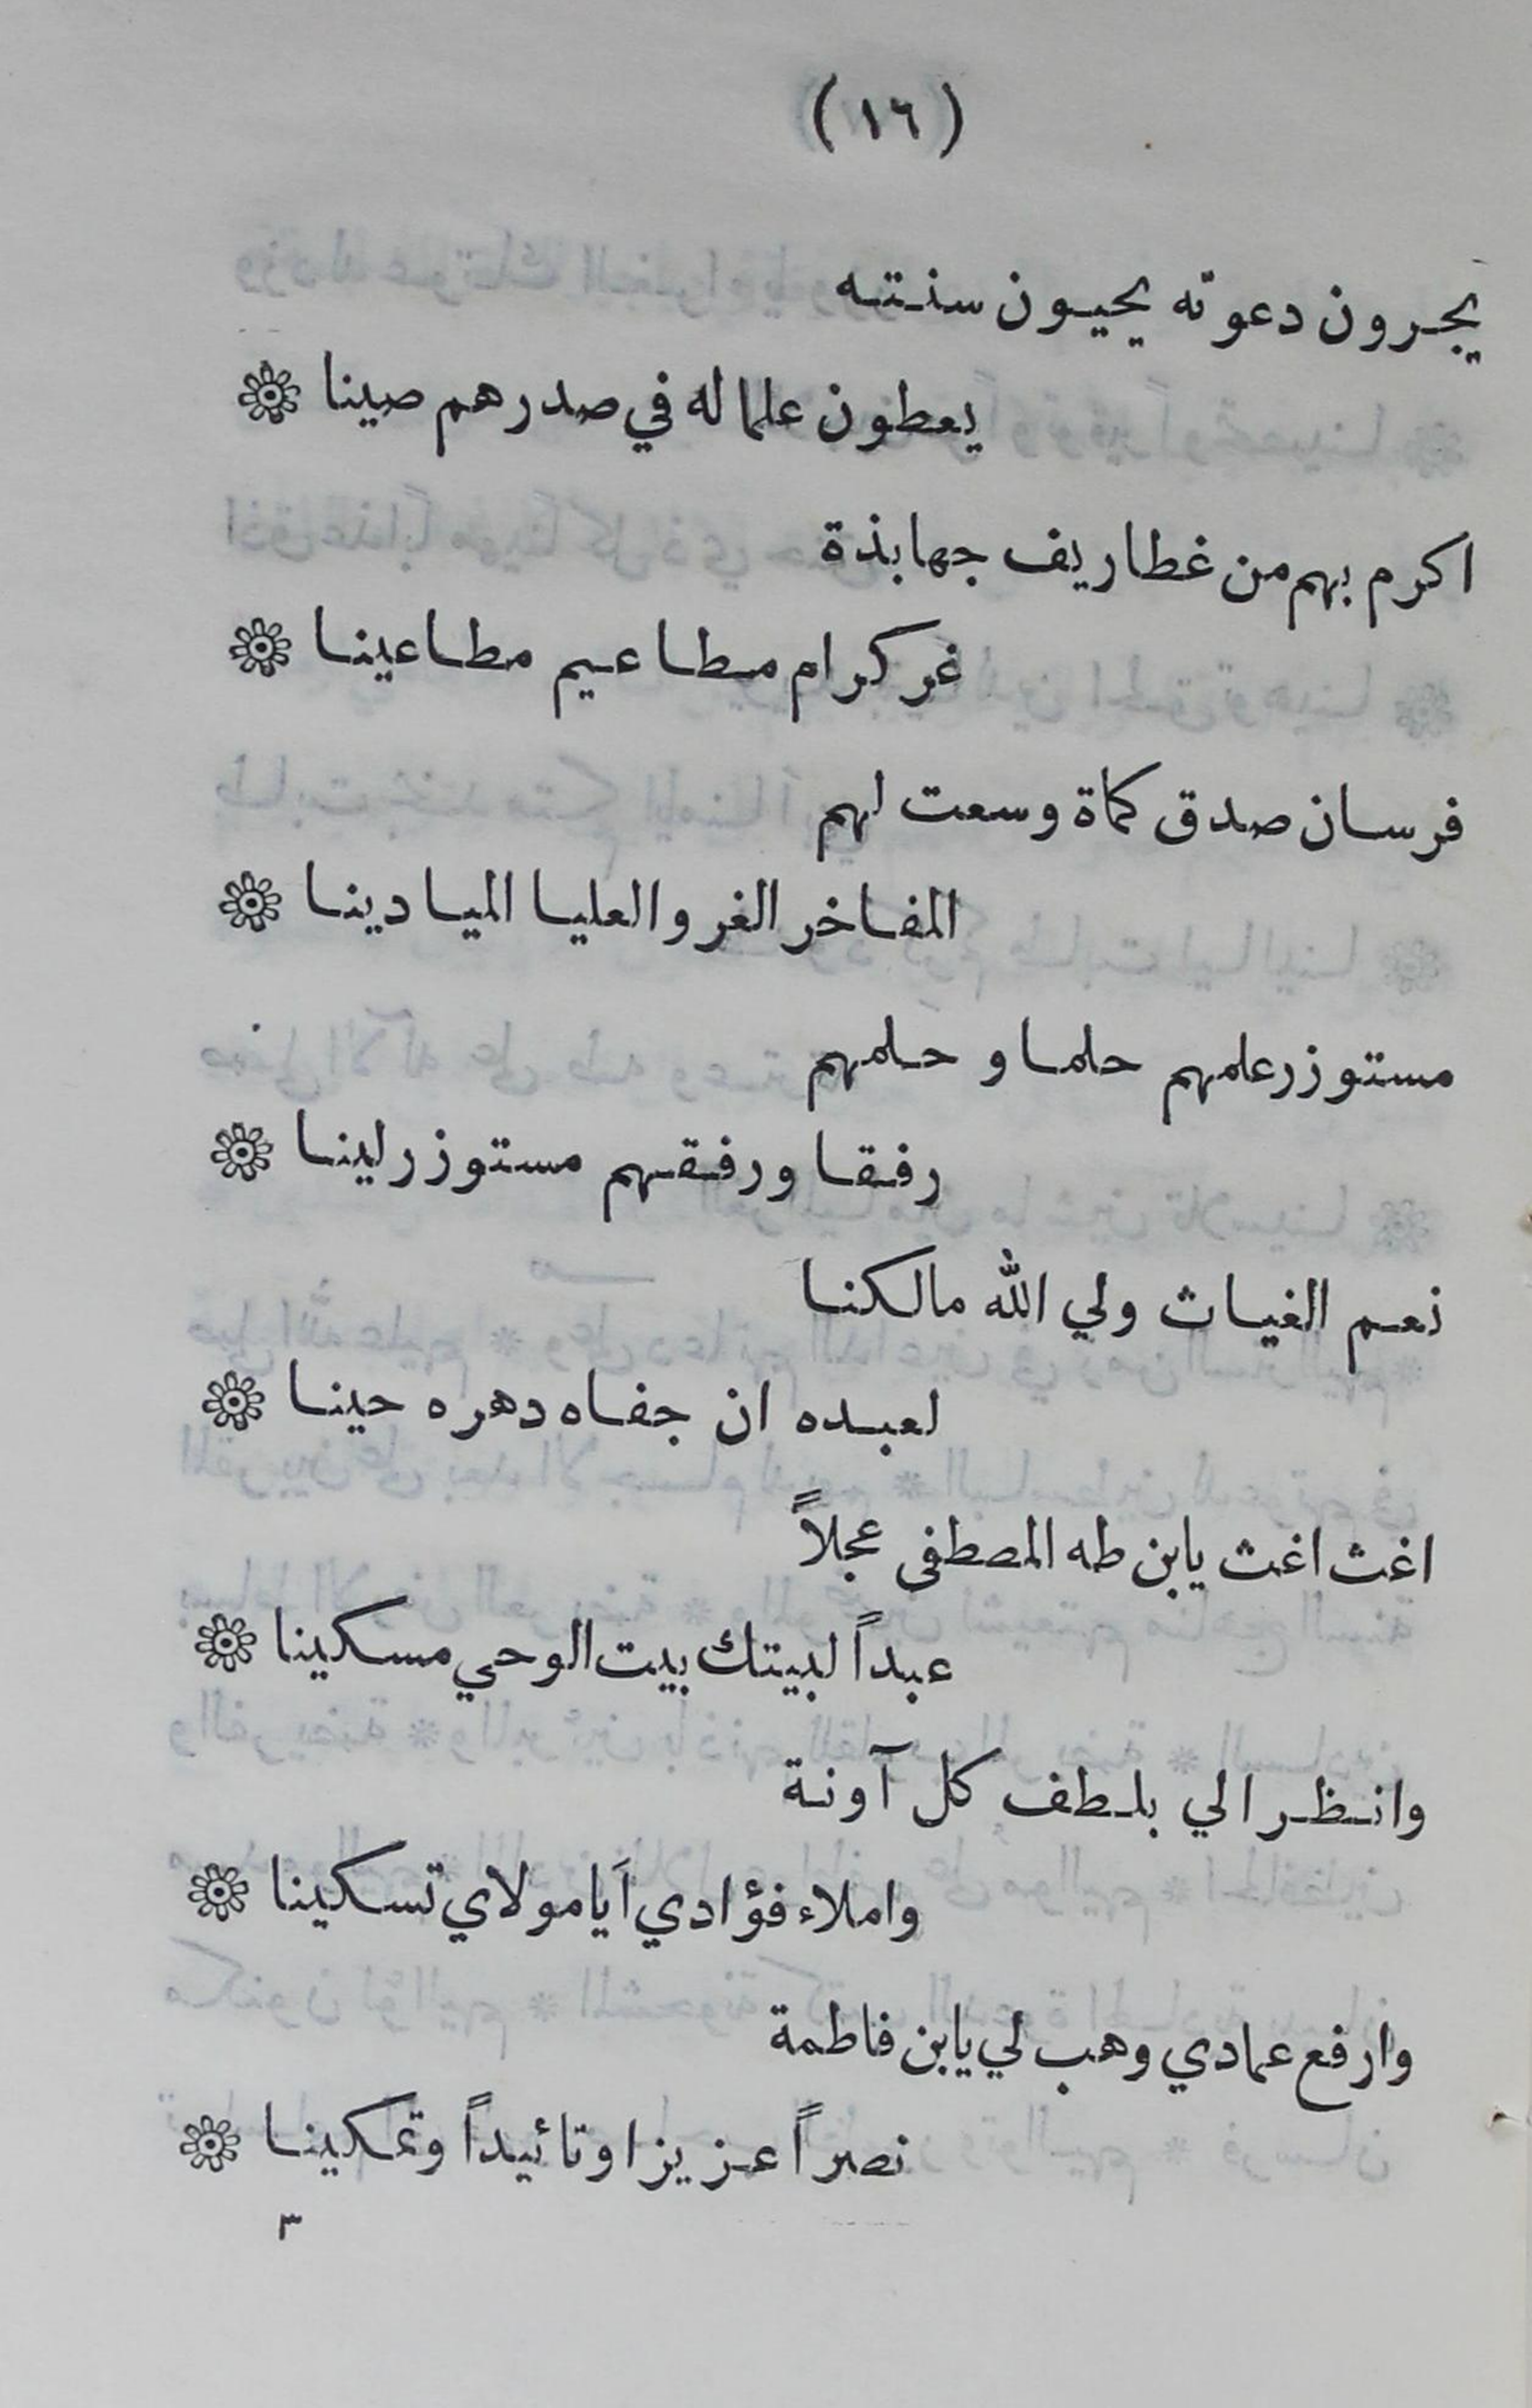 (١٦)
يجرون دعوته يحيون سنته
يعطون علما له في صدرهم صينا
اكرم بهم من غطاريف جهابذة
غر كرام مطاعيم مطاعينا
فرسان صدق كماة وسعت لهم
المفاخر الغر والعليا الميادينا
مستوزر علمهم حلما و حلمهم
رفقا ورفقهم مستوزر لينا
نعم الغياث ولي الله مالكنا
لعبده ان جفاه دهره حينا
اغث اغث يابن طه المصطفى عجلاً
عبداً لبيتك بيت الوحي مسكينا
وانظر الي بلطف كل آونة
واملاء فؤادي اَيا مولاي تسكينا
وارفع عمادي وهب لي يابن فاطمة
نصراً عزيزا وتائيداً وتمكينا
٣